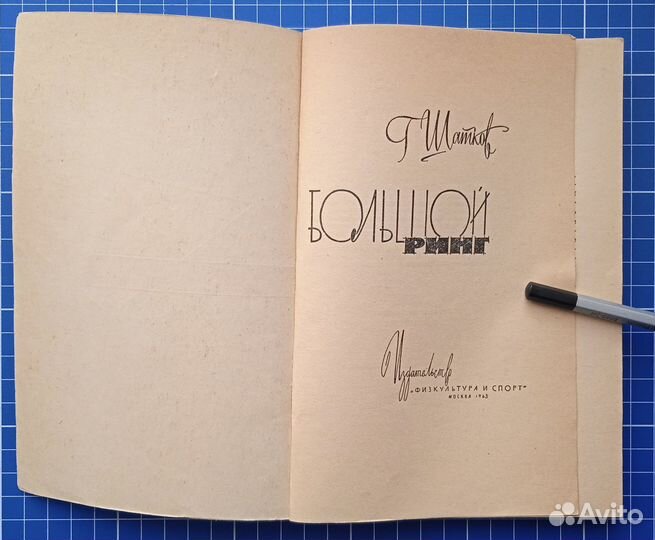 Г Шатков
БОЛЬШОЙ
РИНГ
Издательство
„ФИЗКУЛЬТУРА И СПОРТ“
МОСКВА 1963
Avito